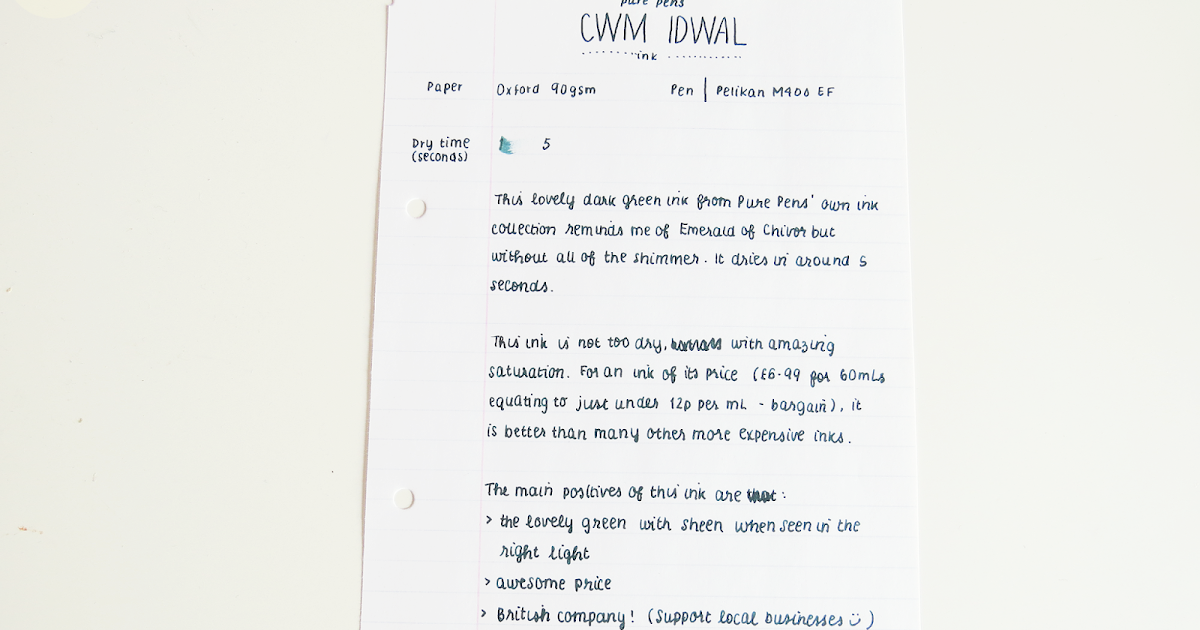 pure pens
CWM IDWAL
ink
Paper Oxford 90gsm Pen | Pelikan M400 EF
Dry time (seconds) 5
This lovely dark green ink from Pure Pens' own ink
collection reminds me of Emerald of Chivor but
without all of the shimmer. It dries in around 5
seconds.
This ink is not too dry, with amazing
saturation. For an ink of its price (£6.99 for 60mLs
equating to just under 12p per mL - bargain), it
is better than many other more expensive inks.
The main positives of this ink are that:
> the lovely green with sheen when seen in the
right light
> awesome price
> British company! (Support local businesses ü)